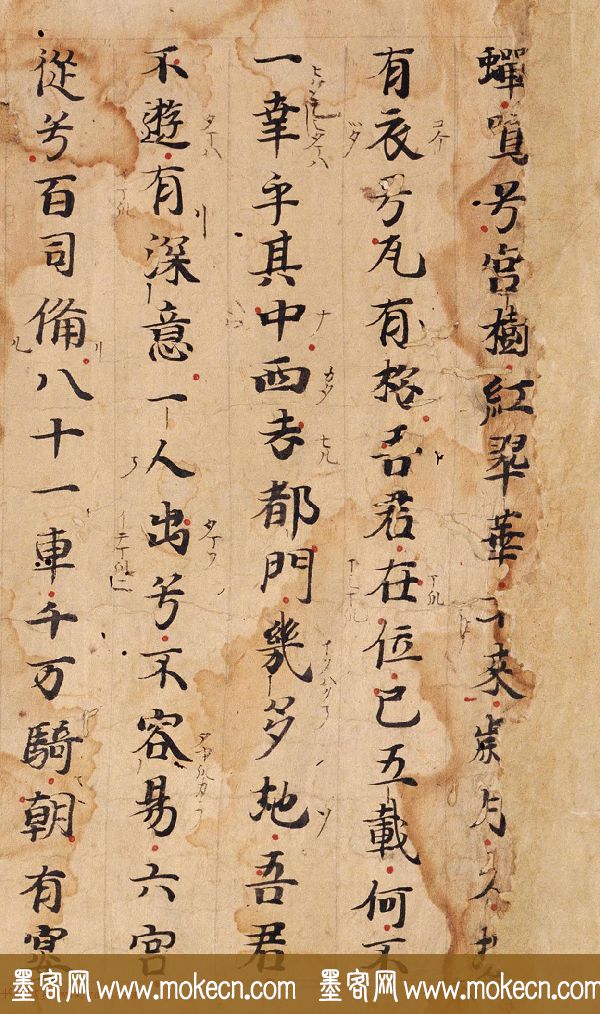 蟬兮宮樹紅翠華不來歲月久
有衣兮瓦有松吾君在位已五載何不
一幸乎其中西去都門幾多地吾君
不遊有深意一人出兮不容易六宮
從兮百司備八十一車千万騎朝有宴
墨客网 www.mokecn.com 墨客网 www.mokecn.com